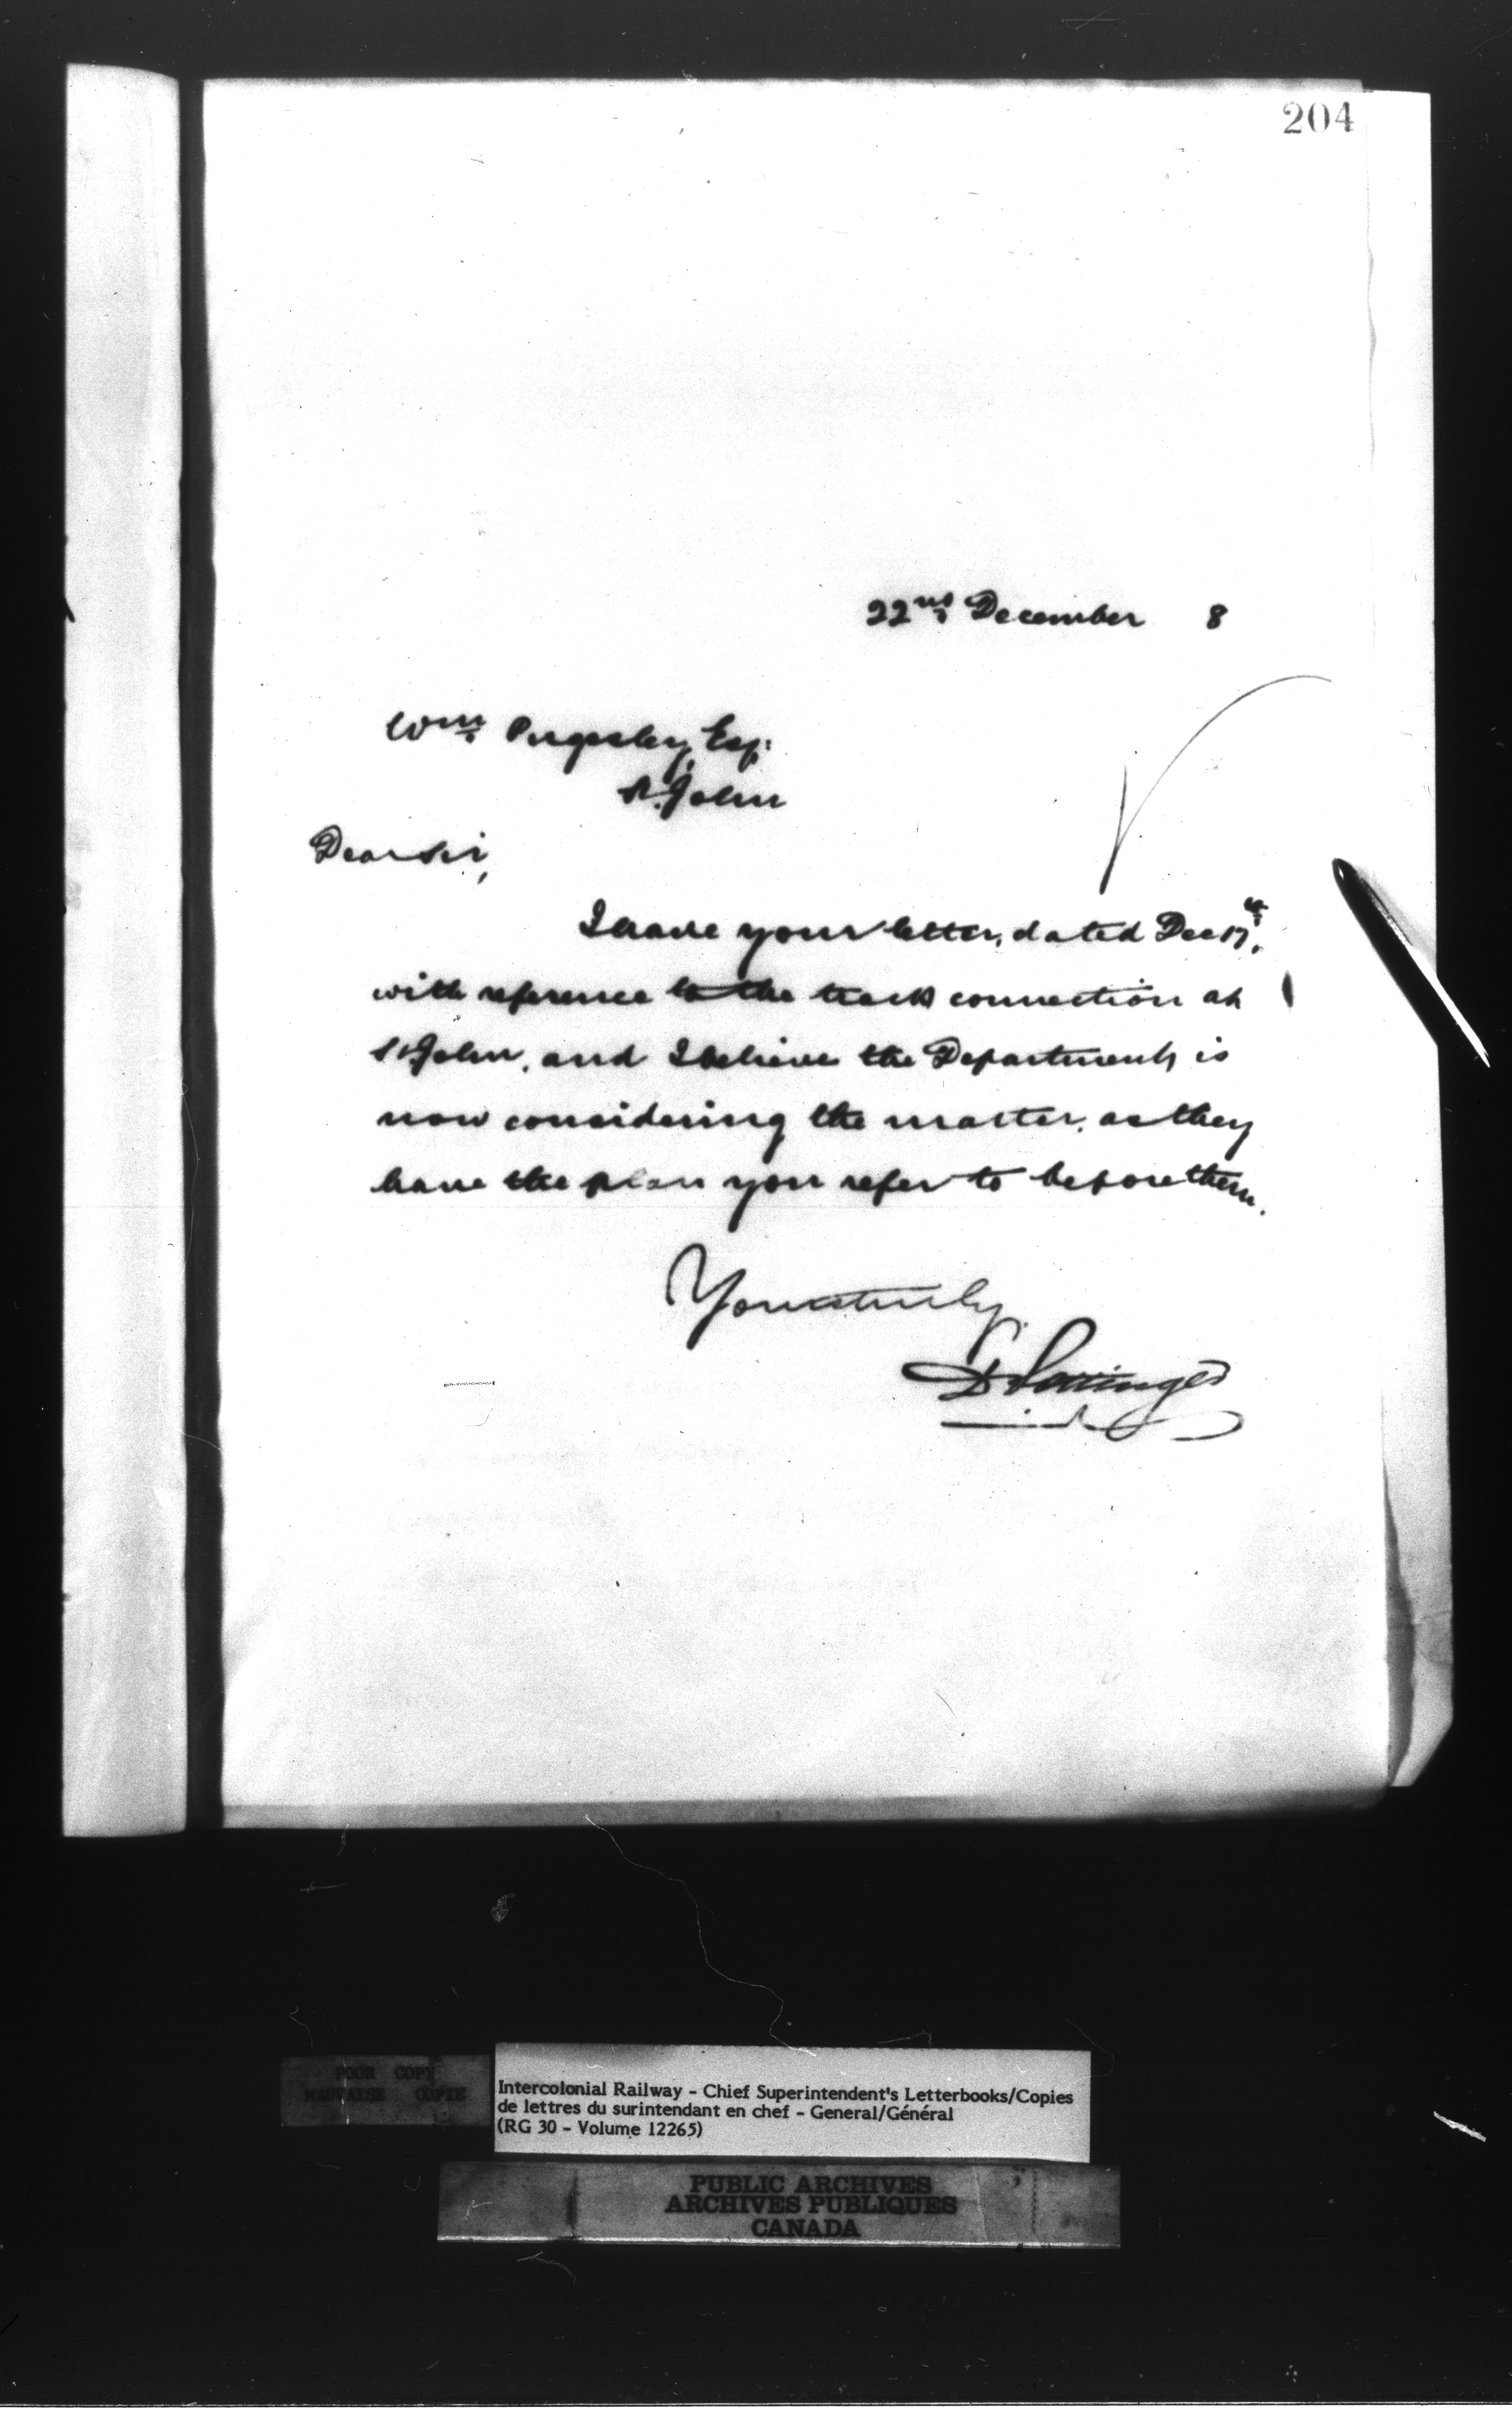 204
22nd December 8
Wm Pugsley, Esq:
St. John
Dear Sir,
I have your letter, dated Dec 17th,
with reference to the track connection at
St John, and I believe the Department is
now considering the matter, as they
have the plan you refer to before them.
Yours truly
D Pottinger
POOR COPY
MAUVAISE COPIE
Intercolonial Railway - Chief Superintendent's Letterbooks/Copies
de lettres du surintendant en chef - General/Général
(RG 30 - Volume 12265)
PUBLIC ARCHIVES
ARCHIVES PUBLIQUES
CANADA